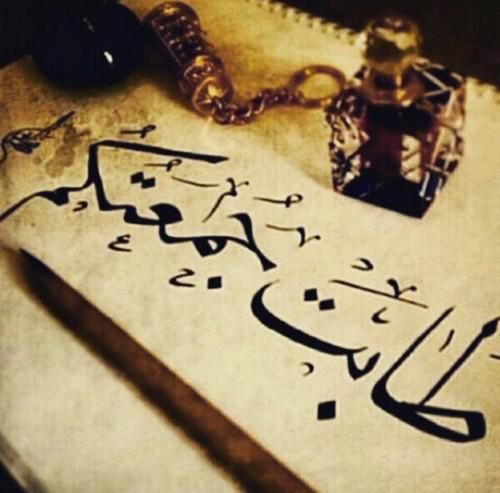 طابت جمعتكم